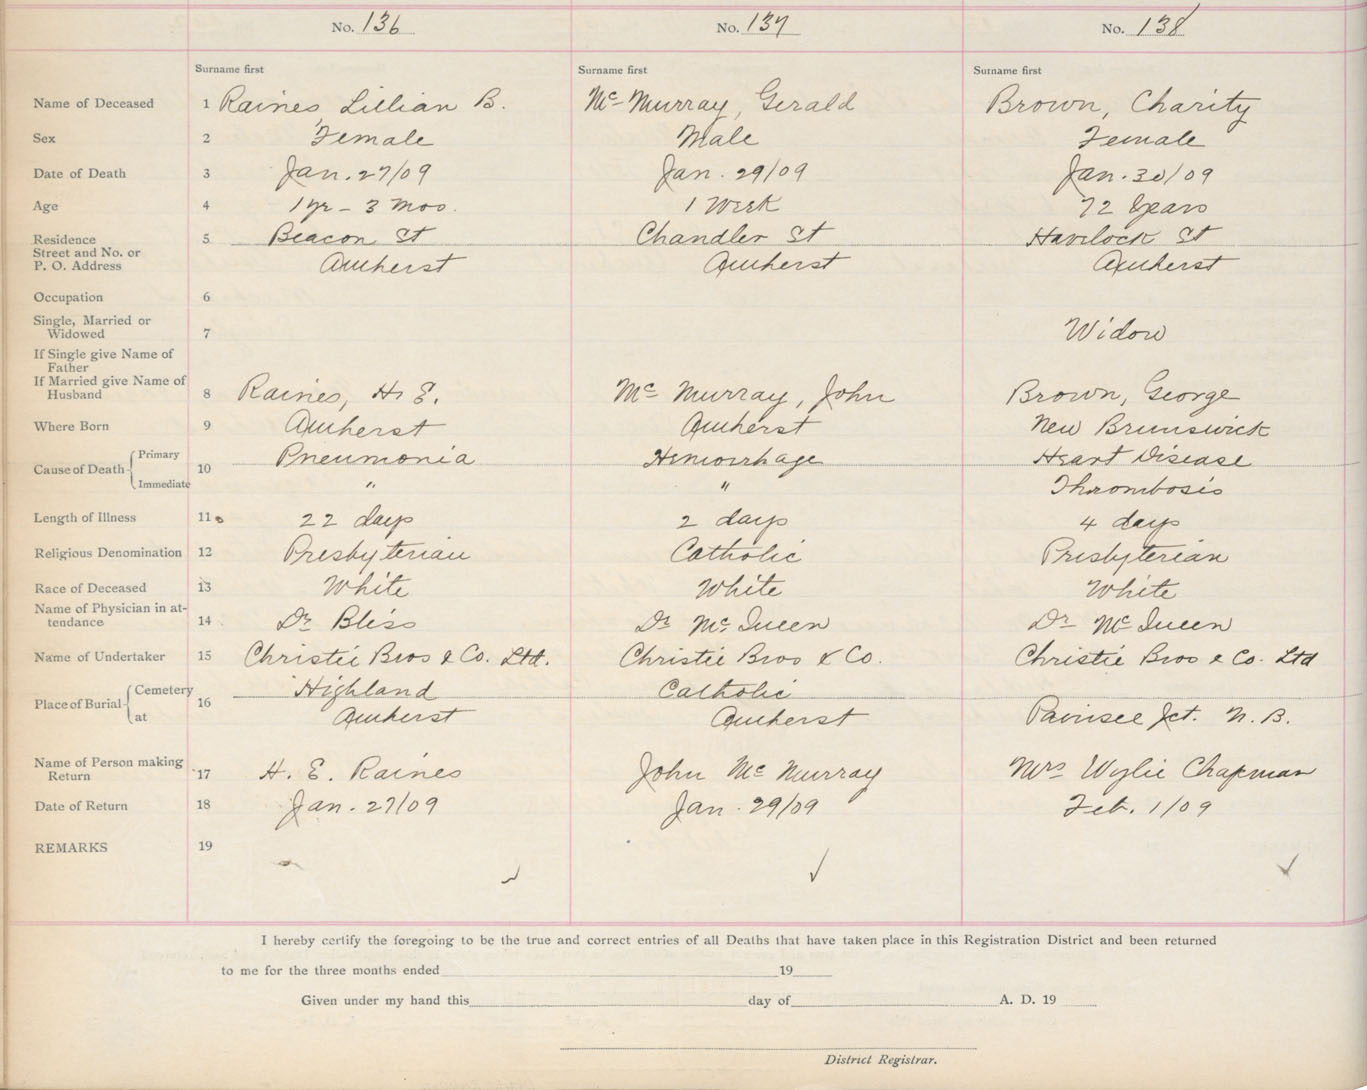 No. 136 No. 137 No. 138
Surname first Surname first Surname first
Name of Deceased 1 Raines, Lillian B. Mc Murray, Gerald Brown, Charity
Sex 2 Female Male Female
Date of Death 3 Jan. 27/09 Jan. 29/09 Jan. 30/09
Age 4 1 yr - 3 mos. 1 Week 72 Years
Residence 5 Beacon St Chandler St Havelock St
Street and No. or
P. O. Address Amherst Amherst Amherst
Occupation 6
Single, Married or
Widowed 7 Widow
If Single give Name of
Father
If Married give Name of
Husband 8 Raines, H. E. Mc Murray, John Brown, George
Where Born 9 Amherst Amherst New Brunswick
Cause of Death Primary 10 Pneumonia Hemorrhage Heart Disease
Immediate " " Thrombosis
Length of Illness 11 22 days 2 days 4 days
Religious Denomination 12 Presbyterian Catholic Presbyterian
Race of Deceased 13 White White White
Name of Physician in at-
tendance 14 Dr Bliss Dr McQueen Dr McQueen
Name of Undertaker 15 Christie Bros & Co. Ltd. Christie Bros & Co. Christie Bros & Co. Ltd
Place of Burial Cemetery 16 Highland Catholic
at Amherst Amherst Painsec Jct. N. B.
Name of Person making
Return 17 H. E. Raines John Mc Murray Mrs Wylie Chapman
Date of Return 18 Jan. 27/09 Jan. 29/09 Feb. 1/09
REMARKS 19
I hereby certify the foregoing to be the true and correct entries of all Deaths that have taken place in this Registration District and been returned
to me for the three months ended 19
Given under my hand this day of A. D. 19
District Registrar.